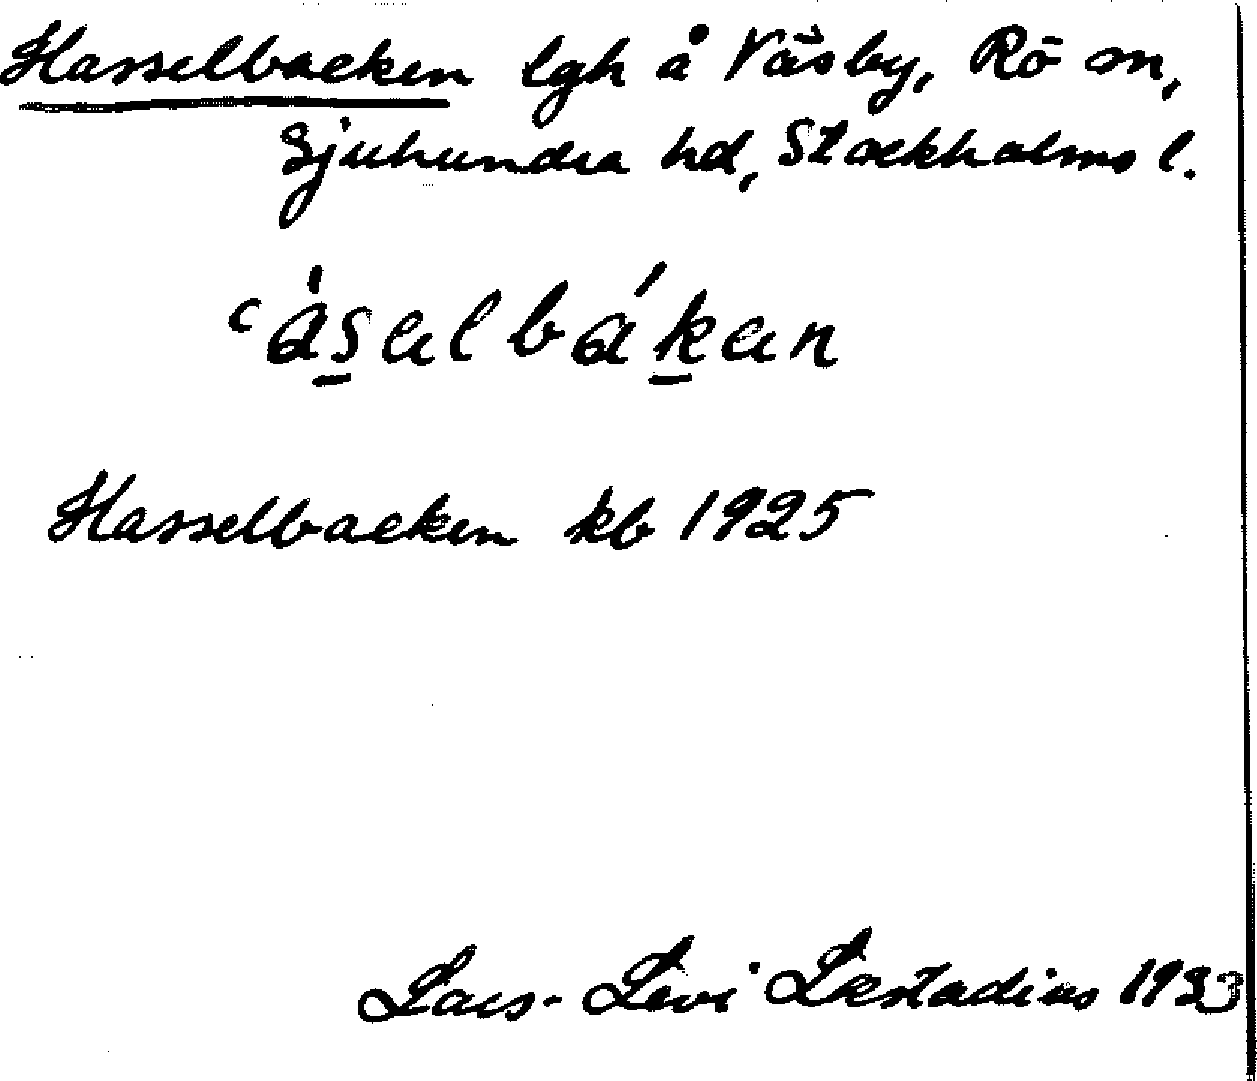 Hasselbacken lgh å Väsby, Rö sn,
Sjuhundra hd, Stockholms l.
Hasselbacken kb 1925
Lars-Levi Læstadius 1933